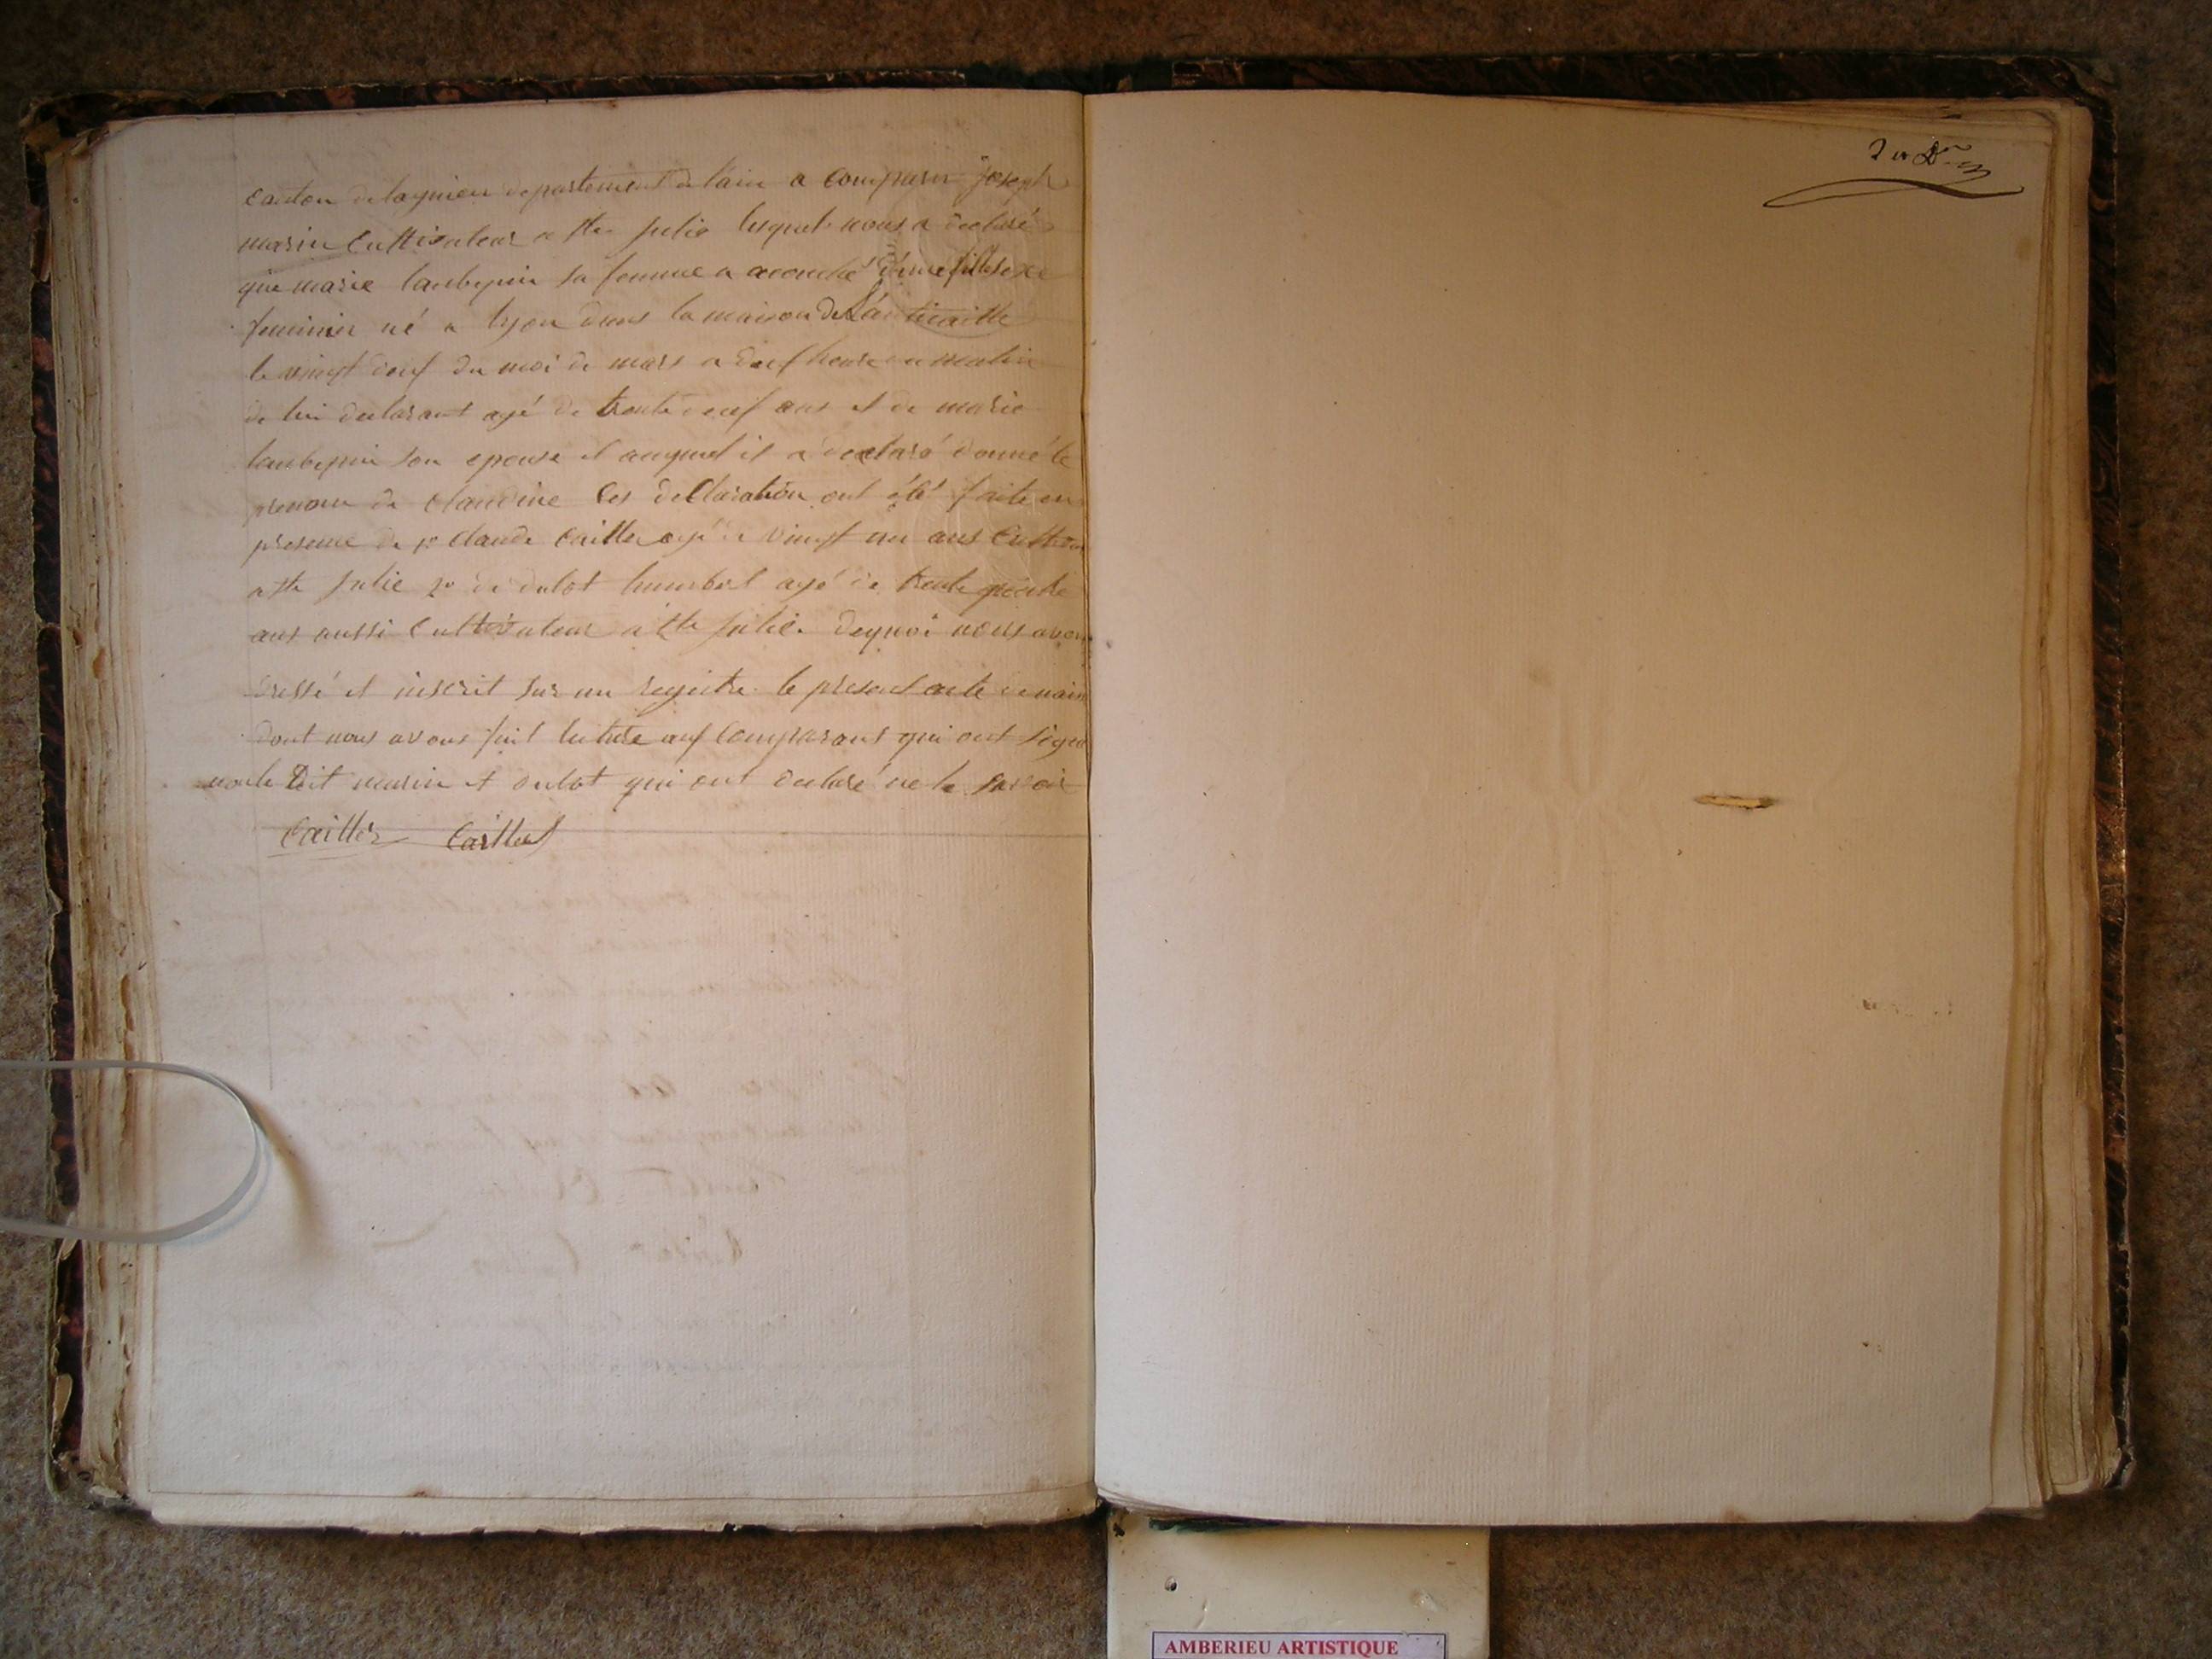 canton de lagnieu departement de lain a comparu joseph
marin Cultivateur a ste julie lequel nous a declaré
que marie laubepin sa femme a acouché d'une fille sexe
feminin né a lyon dans la maison de L'anticaille
le vingt deuf du moi de mars a deuf heure du matin
de lui declarant agé de trente deuf ans et de marie
laubepin son epouse et auquel il a declaré donné le
prenom de Claudine Ces declaration ont été faite en
presence de po Claude Cailler agé de vingt un ans
a ste julie 2o de dulot humbert agé de trente
ans aussi Cultivateur a ste julie. dequoi nous avons
dressé et inscrit sur un registre le present acte de
dont nous avons fait lecture auf Comparant qui ont signé
non le dit marin et dulot qui ont declaré ne le savoir
Cailler Cailler
AMBERIEU ARTISTIQUE